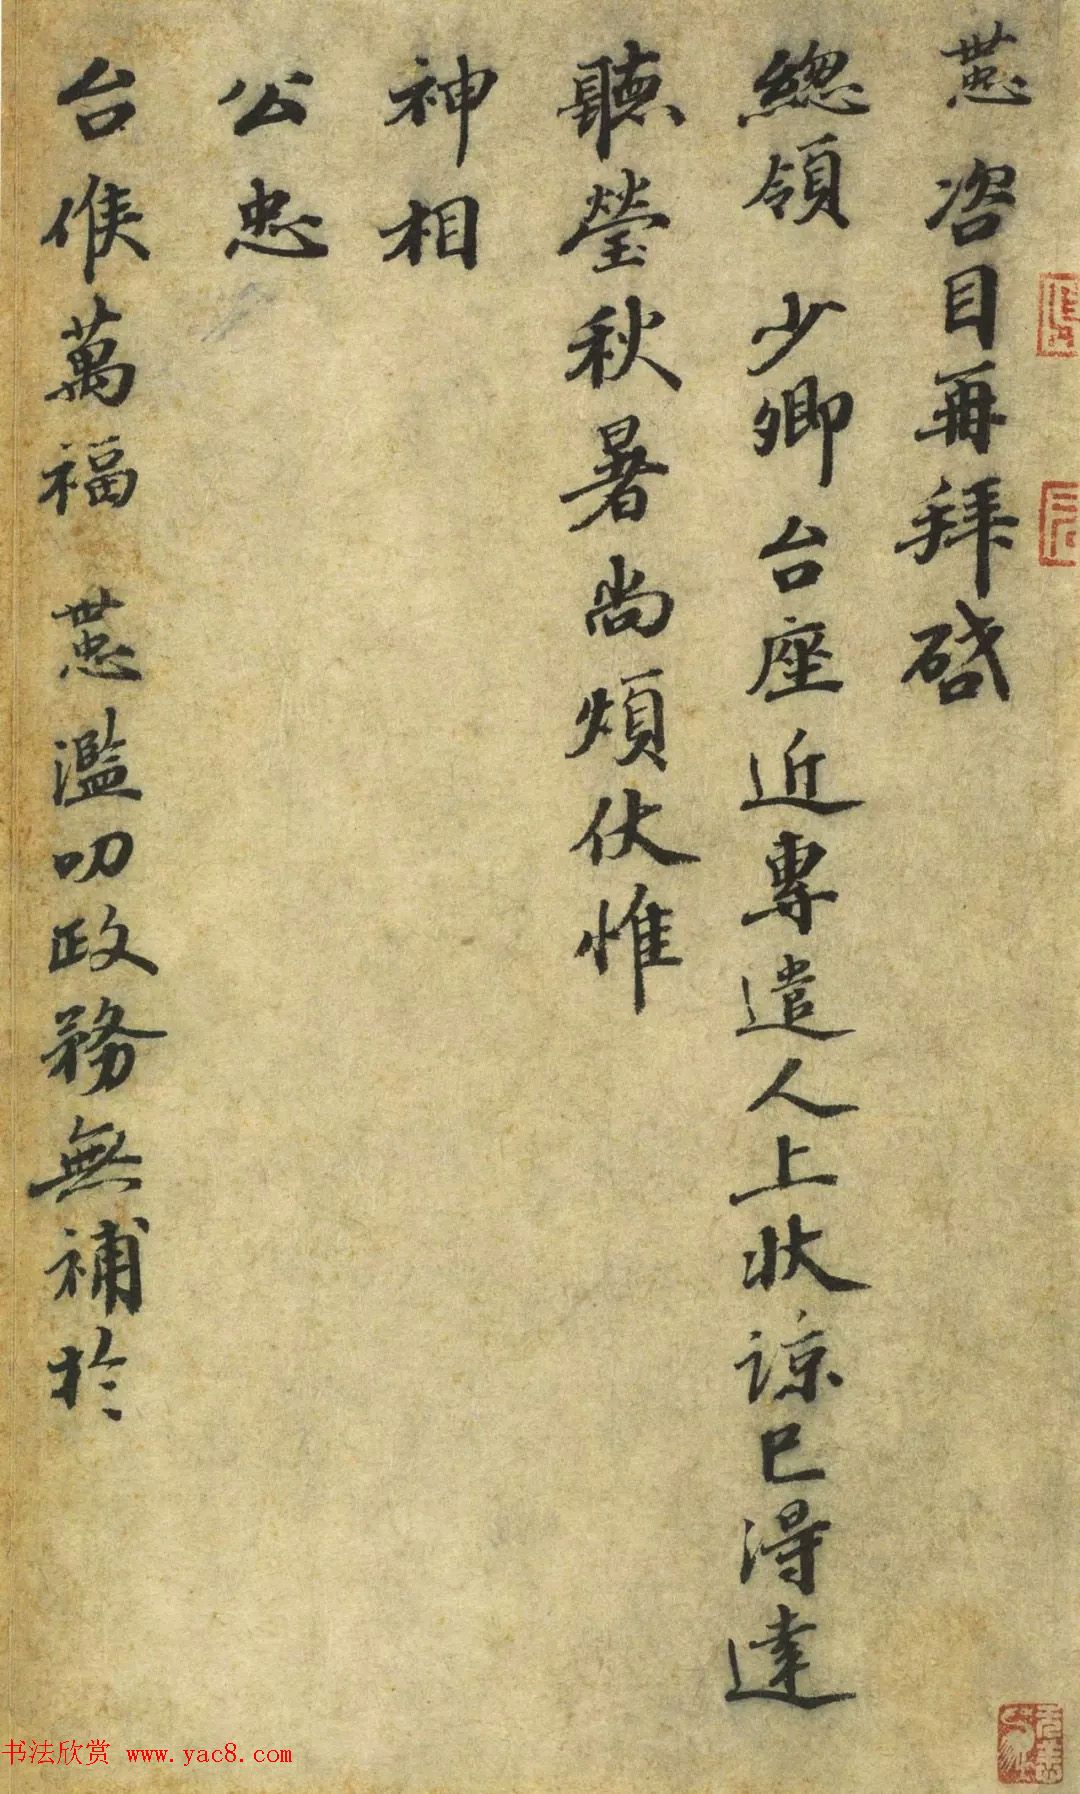 世忠咨目再拜啓
總領少卿台座近專遣人上狀諒已得達
聽瑩秋暑尚煩伏惟
神相
公忠
台候萬福世忠濫叨政務無補於
书法欣赏 www.yac8.com